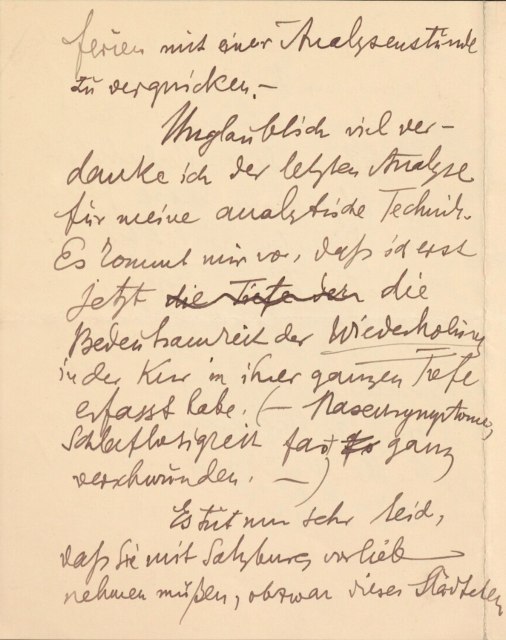 ferien mit einer Analysenstunde
zu verquicken.–
Unglaublich viel ver-
danke ich der letzten Analyse
für meine analytische Technik.
Es kommt mir vor, daß ich erst
jetzt die Tiefe der die
Bedeutsamkeit der Wiederholung
in der Kur in ihrer ganzen Tiefe
erfasst habe. (– Nasensymptome,
Schlaflosigkeit fast ganz
verschwunden. –)
Es tut mir sehr leid,
daß Sie mit Salzburg vorlieb
nehmen müßen, obzwar dieses Städtchen